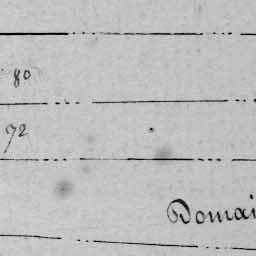 80
72
Domai